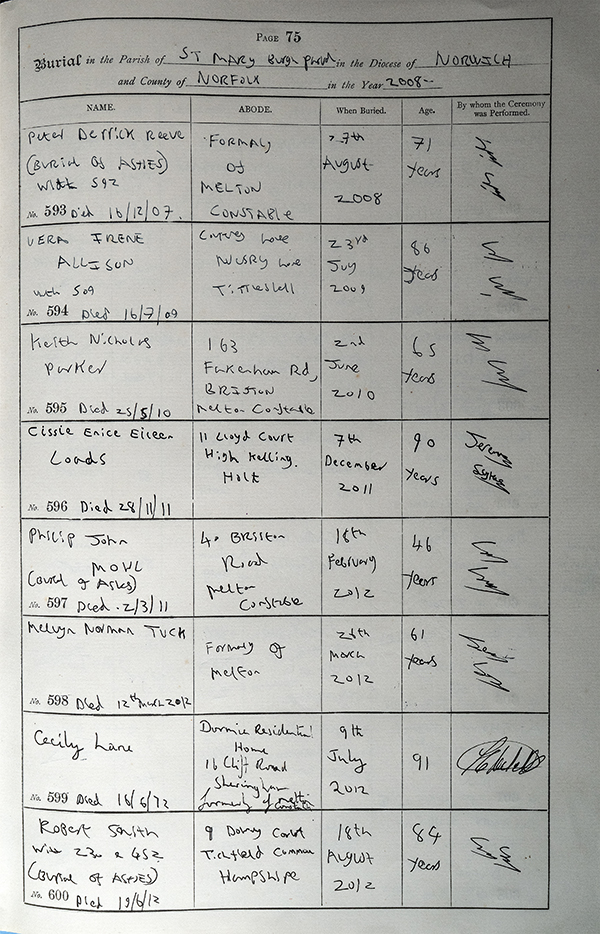 PAGE 75
Burial in the Parish of ST MARY Burgh Parva in the Diocese of NORWICH
and County of NORFOLK in the Year 2008-
NAME. ABODE. When Buried. Age. By whom the Ceremony was Performed.
Peter Derrick Reeve
(Burial Of ASHES)
with 592
No. 593 Died 16/12/07.
FORMALY
Of
MELTON
CONSTABLE
7th
August
2008
71
years
VERA IRENE
ALLISON
with 509
No. 594 Died 16/7/09
23rd
July
2009
86
years
Keith Nicholas
Parker
No. 595 Died 25/5/10
163
Fakenham Rd,
BRISTON
Melton Constable
2nd
June
2010
65
years
Cissie Enice Eileen
Loads
No. 596 Died 28/11/11
11 Lloyd Court
High Kelling.
Holt
7th
December
2011
90
years
Jeremy
Sykes
PHILIP John
MOUL
(Burial of Ashes)
No. 597 Died. 2/3/11
40 BRISTON
Road
Melton
Constable
16th
February
2012
46
years
Melvyn Norman TUCK
No. 598 Died 12th March 2012
Formaly Of
Melton
March
2012
61
years
Cecily Lane
No. 599 Died
Dormie Residential
Home
16 Cliff Road
Sheringham
formerly of
9th
July
2012
91
Robert Smith
with 230 & 452
(Burial of ASHES)
No. 600 Died 19/6/12
9 Court
Titchfield Common
Hampshire
18th
August
2012
84
years